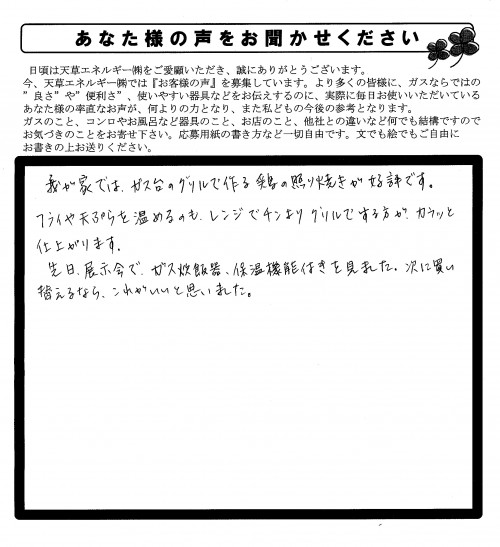 あなた様の声をお聞かせください
日頃は天草エネルギー㈱をご愛顧いただき、誠にありがとうございます。
今、天草エネルギー㈱では『お客様の声』を募集しています。より多くの皆様に、ガスならではの
”良さ”や”便利さ”、使いやすい器具などをお伝えするのに、実際に毎日お使いいただいている
あなた様の率直なお声が、何よりの力となり、また私どもの今後の参考となります。
ガスのこと、コンロやお風呂など器具のこと、お店のこと、他社との違いなど何でも結構ですので
お気づきのことをお寄せ下さい。応募用紙の書き方など一切自由です。文でも絵でもご自由に
お書きの上お送りください。
我が家では、ガス台のグリルで作る鶏の照り焼きが好評です。
フライや天ぷらを温めるのも、レンジでチンよりグリルでする方が、カラッと
仕上がります。
先日、展示会で、ガス炊飯器、保温機能付きを見ました。次に買い
替えるなら、これがいいと思いました。